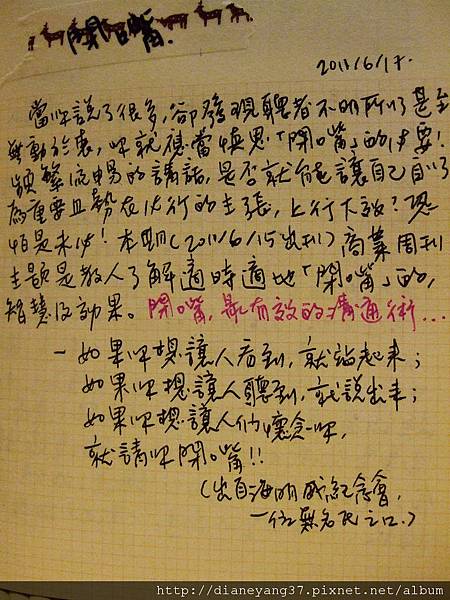 閉嘴.
2011/6/17.
當你說了很多, 卻發現聽者不明所以甚至
無動於衷, 你就應當慎思「閉嘴」的必要!
頻繁流暢的講話, 是否就能讓自己自以
為重要且勢在必行的主張, 上行下效? 恐
怕是未必! 本期(2011/6/15出刊) 商業周刊
主題是教人了解適時適地「閉嘴」的,
智慧及効果。閉嘴, 最有效的溝通術...
- 如果你想讓人看到, 就站起來;
如果你想讓人聽到, 就說出來;
如果你想讓人們懷念你,
就請你閉嘴!!
(出自海明威紀念會,
一位無名氏之口.)
http://dianeyang37.pixnet.net/album